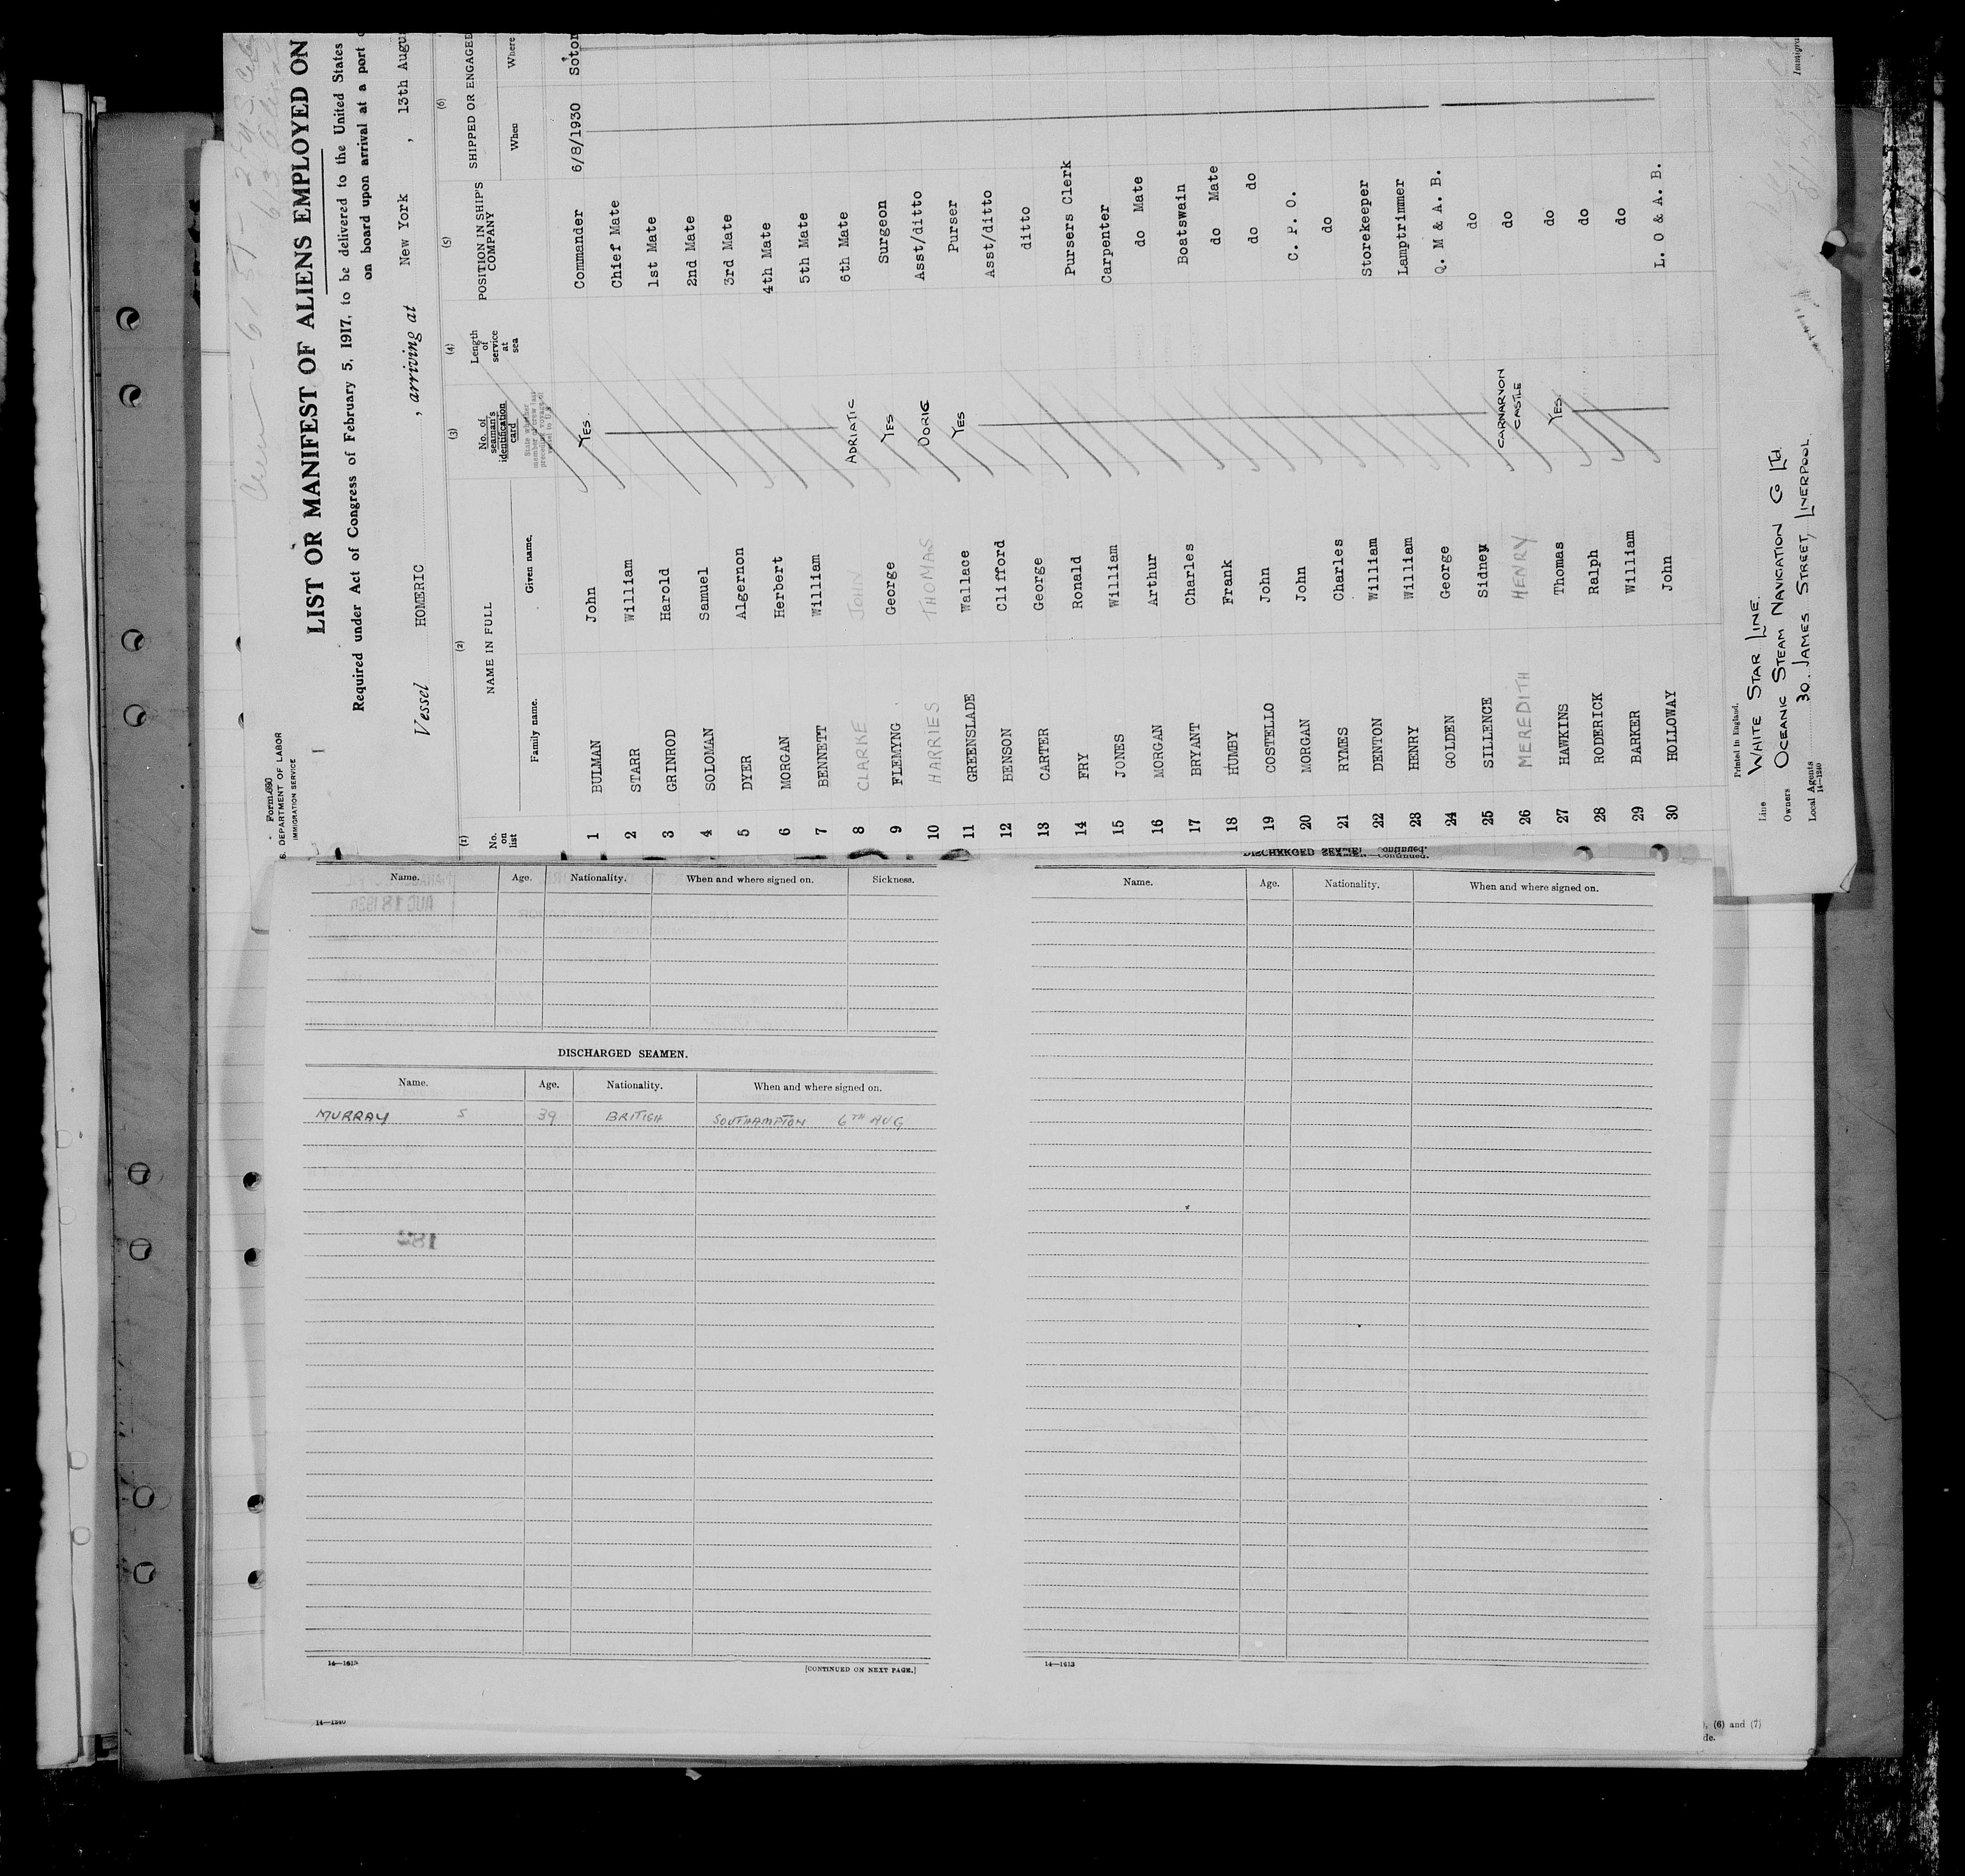 Form 690
DEPARTMENT OF LABOR
IMMIGRATION SERVICE
LIST OR MANIFEST OF ALIENS EMPLOYED ON
Required under Act of Congress of February 5, 1917, to be delivered to the United States
on board upon arrival at a port
Vessel HOMERIC , arriving at New York , 13th Augu
(1) (2) (3) (4) (5) (6)
No. on list NAME IN FULL No. of seaman's identification card Length of service at sea POSITION IN SHIP'S COMPANY SHIPPED OR ENGAGED
Family name. Given name. State whether member of crew last preceding voyage of vessel to U.S. When Where
1 BULMAN John YES. Commander 6/8/1930 Soton
2 STARR William Chief Mate
3 GRINROD Harold 1st Mate
4 SOLOMAN Samuel 2nd Mate
5 DYER Algernon 3rd Mate
6 MORGAN Herbert 4th Mate
7 BENNETT William 5th Mate
8 CLARKE JOHN ADRIATIC 6th Mate
9 FLEMYNG George YES Surgeon
10 HARRIES THOMAS DORIC Asst/ditto
11 GREENSLADE Wallace YES Purser
12 BENSON Clifford Asst/ditto
13 CARTER George ditto
14 FRY Ronald Pursers Clerk
15 JONES William Carpenter
16 MORGAN Arthur do Mate
17 BRYANT Charles Boatswain
18 HUMBY Frank do Mate
19 COSTELLO John do do
20 MORGAN John C. P. O.
21 RYMES Charles do
22 DENTON William Storekeeper
23 HENRY William Lamptrimmer
24 GOLDEN George Q. M & A. B.
25 SILLENCE Sidney do
26 MEREDITH HENRY CARNARVON CASTLE do
27 HAWKINS Thomas YES. do
28 RODERICK Ralph do
29 BARKER William do
30 HOLLOWAY John L. O & A. B.
Printed in England.
Line WHITE STAR LINE.
Owners OCEANIC STEAM NAVIGATION CO LTD.
Local Agents 30. JAMES STREET, LIVERPOOL.
14—1240
Immigra
Name. Age. Nationality. When and where signed on. Sickness.
DISCHARGED SEAMEN.
Name. Age. Nationality. When and where signed on.
MURRAY S 39 BRITISH SOUTHAMPTON 6TH AUG
14—1613
[CONTINUED ON NEXT PAGE.]
14—1240
DISCHARGED SEAMEN—Continued.
Name. Age. Nationality. When and where signed on.
14—1613
), (6) and (7)
de.